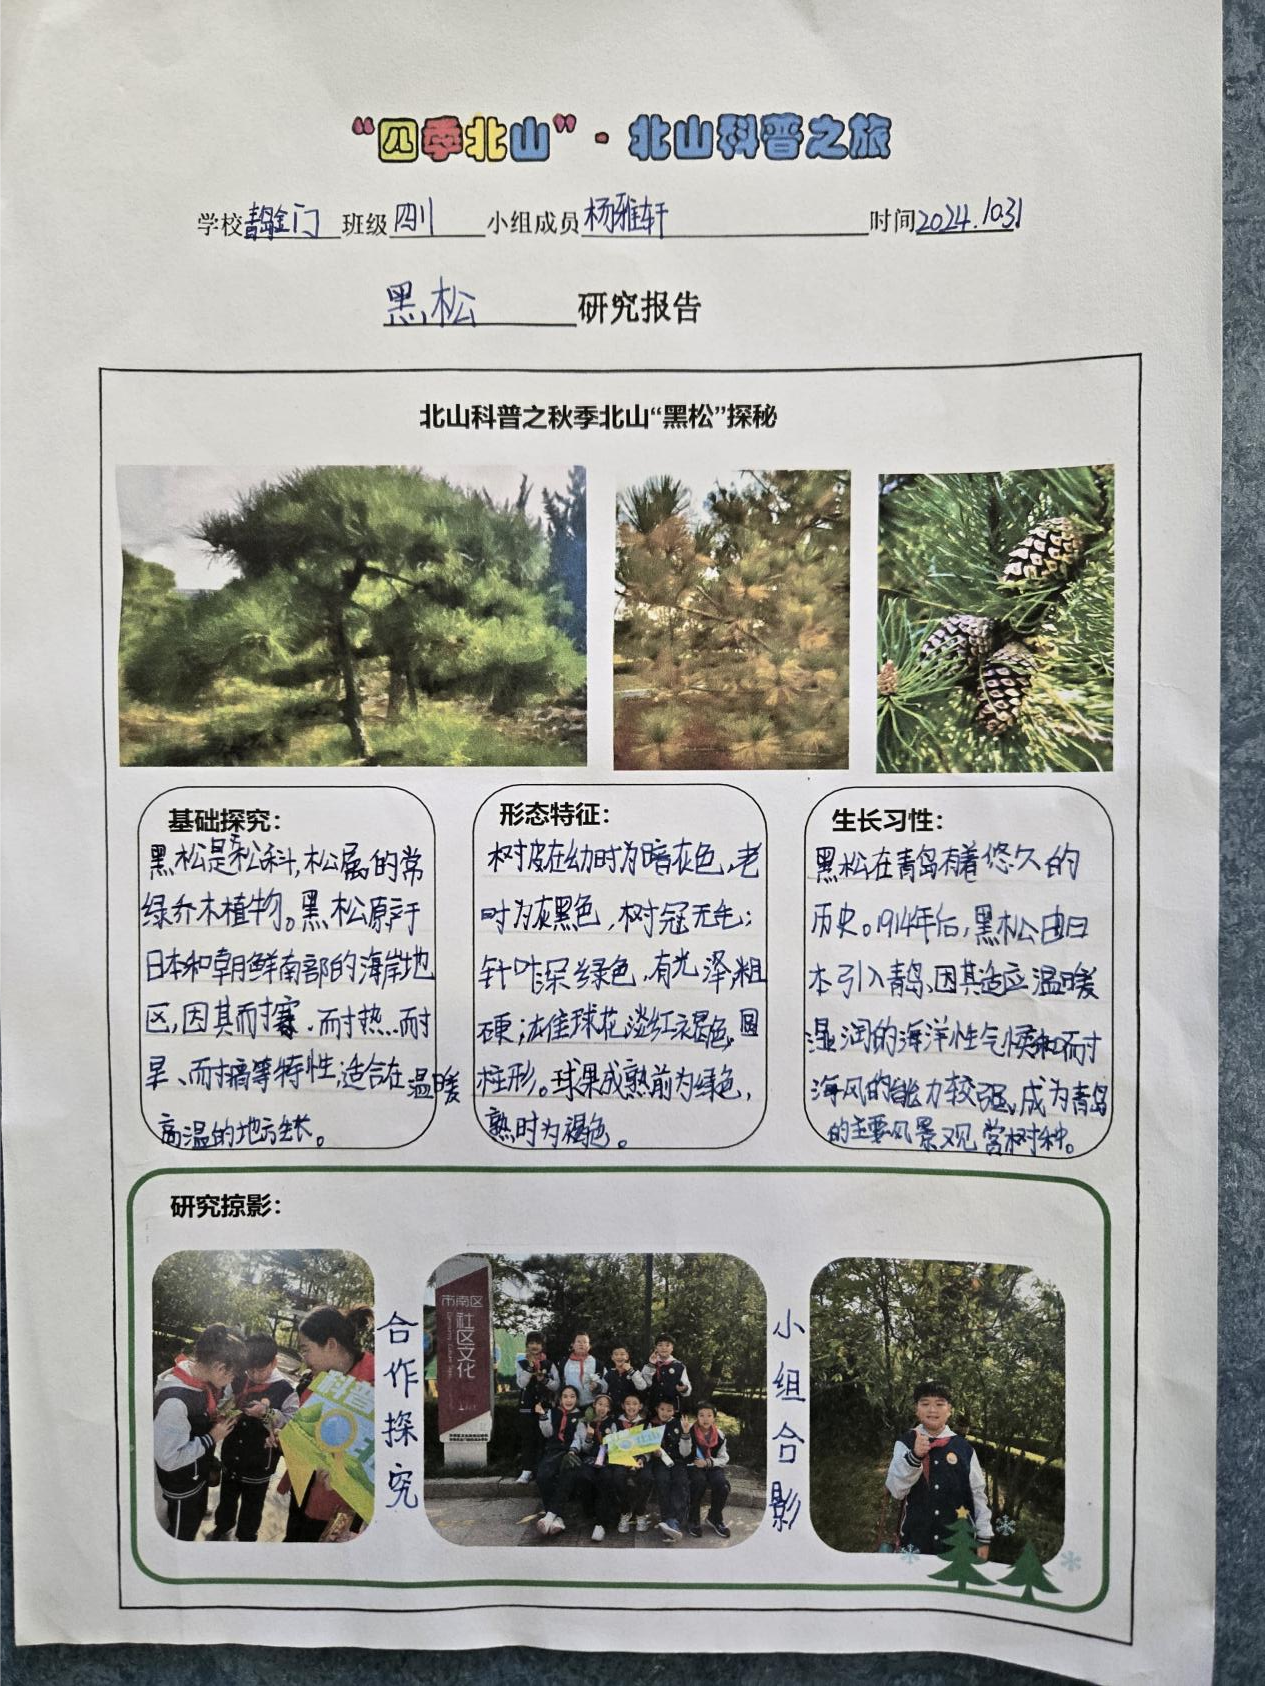 “四季北山”·北山科普之旅
学校青岛金门 班级四川 小组成员杨雅轩 时间2024.10.31
黑松 研究报告
北山科普之秋季北山“黑松”探秘
基础探究：
黑松是松科，松属的常
绿乔木植物。黑松原产于
日本和朝鲜南部的海岸地
区，因其耐寒、耐热、耐
旱、耐瘠等特性，适合在温暖
高温的地方生长。
形态特征：
树皮在幼时为暗灰色，老
时为灰黑色，树冠无毛；
针叶深绿色，有光泽粗
硬；雄球花淡红褐色，圆
柱形。球果成熟前为绿色，
熟时为褐色。
生长习性：
黑松在青岛有着悠久的
历史。1914年后，黑松由日
本引入青岛、因其适应温暖
湿润的海洋性气候和耐
海风的能力较强，成为青岛
的主要风景观赏树种。
研究掠影：
合作探究
市南区
社区文化
小组合影
科普